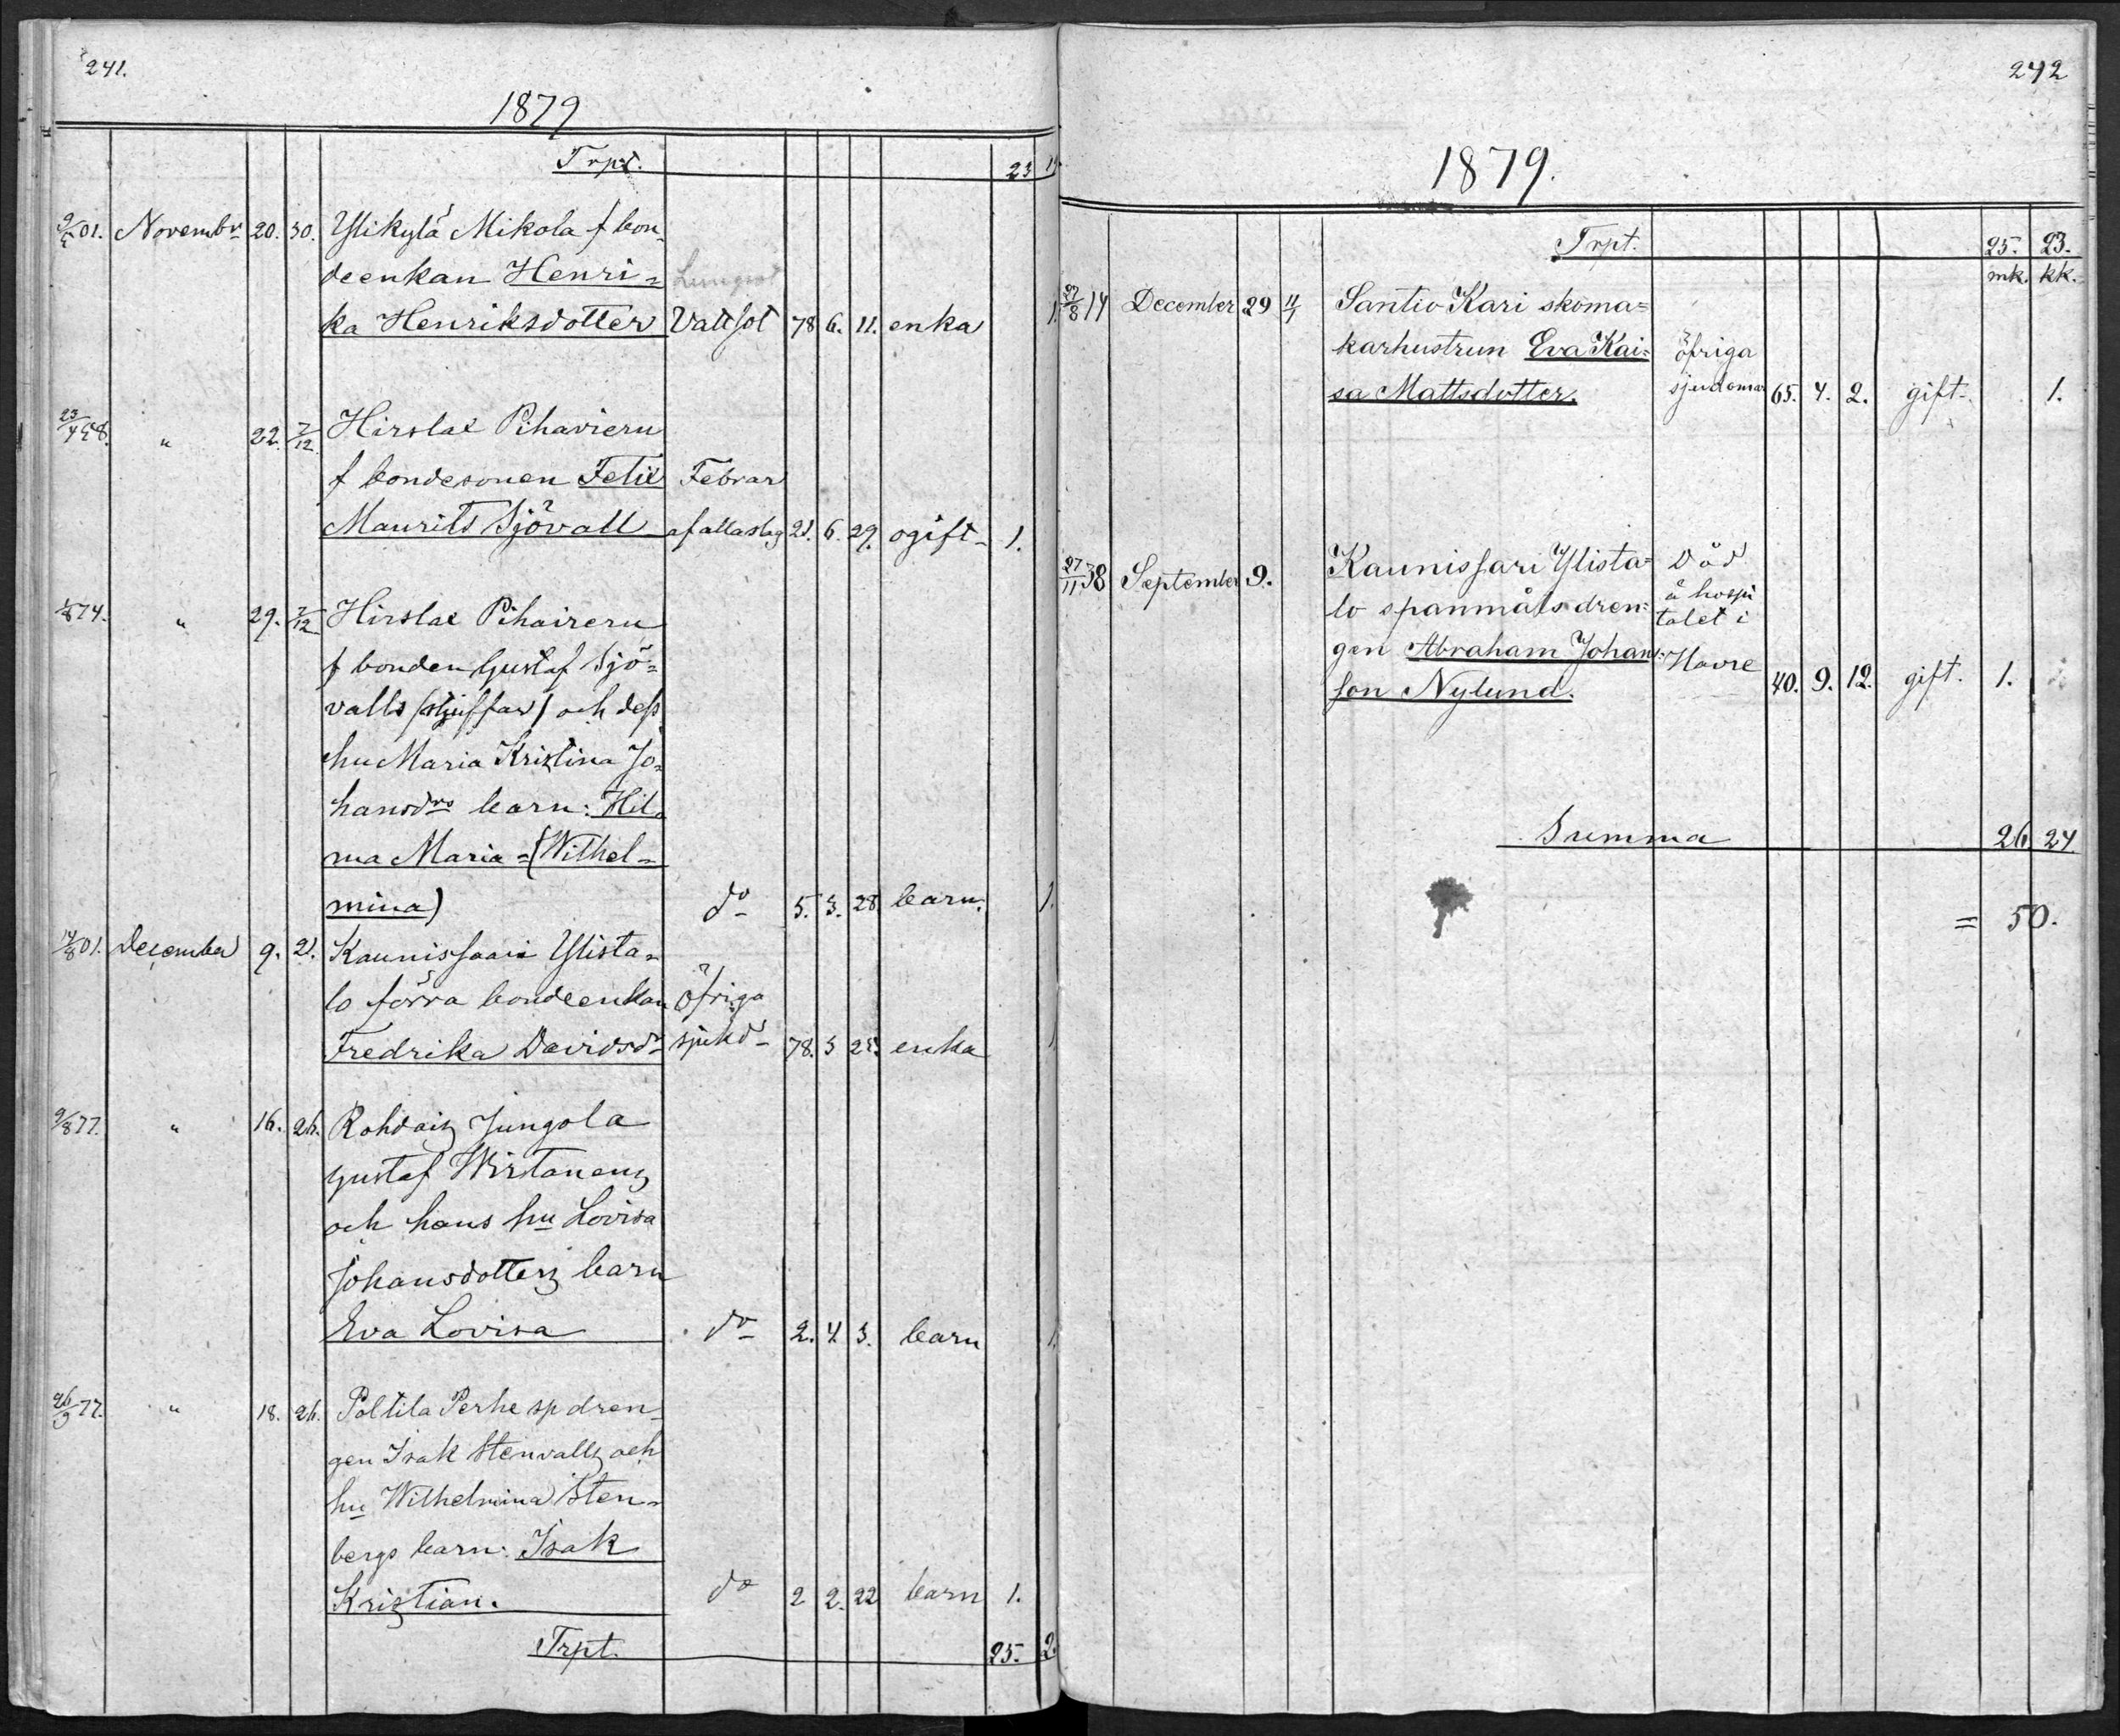 241.
1879
Trpt. 23
9/5 01. Novembr 20. 30. Ylikylä Mikola f bon-
deenkan Henri-
ka Henriksdotter Vattsot 78 6. 11. enka 1.
23/4 58. " 22. 7/12 Hirslax Pihavieru
f bondesonen Felix Febrar
Maurits Sjövall af alla slag 21. 6. 29. ogift 1.
74. " 29. 7/12 Hirslax Pihaireru
f bonden Gustaf Sjö-
valls (styffar) och dess
hu Maria Kristina Jo-
hansdrs barn: Hil-
ma Maria (Wilhel-
mina) do 5. 3. 28. barn. 1.
14/8 01. December 9. 21. Kaunissaari Ylista-
lo förra bondeenkan öfriga
Fredrika Davidsdr sjukd 78. 3 25. enka 1
9/8 77. " 16. 26. Rohdais Jungola
Gustaf Wirtanens
och hans hu Lovisa
Johansdotters barn
Eva Lovisa do 2. 4. 3. barn 1.
26/9 77. " 18. 26. Poltila Perhe sp dren-
gen Isak Stenvalls och
hu Wilhelmina Sten-
bergs barn: Isak
Kristian. do 2 2. 22 barn 1.
Trpt. 25. 2
242
1879.
Trpt. 25. 23.
mk. kk.
27/8 14 December 29 11/1 Santio Kari skoma-
karhustrun Eva Kai- öfriga
sa Mattsdotter. sjudomar 65. 4. 2. gift. 1.
27/11 38 September 9. Kaunissari Ylista- Död
lo spanmåls dren- å hospi
talet i
gen Abraham Johans- Havre
son Nylund. 40. 9. 12. gift. 1.
Summa 26. 24.
= 50.